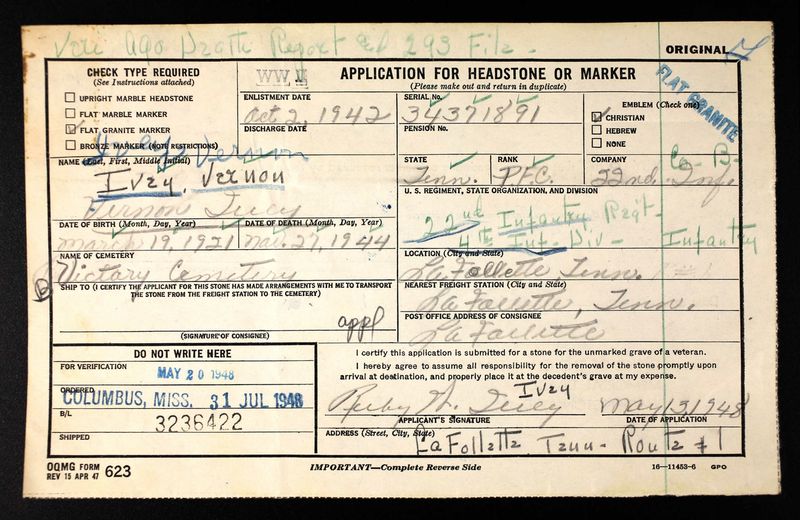 Veri Ago Death Report and 293 File -
ORIGINAL
CHECK TYPE REQUIRED
(See Instructions attached)
UPRIGHT MARBLE HEADSTONE
FLAT MARBLE MARKER
FLAT GRANITE MARKER
BRONZE MARKER (NOTE RESTRICTIONS)
WW II
APPLICATION FOR HEADSTONE OR MARKER
(Please make out and return in duplicate)
ENLISTMENT DATE
Oct 2, 1942
DISCHARGE DATE
SERIAL No.
34371891
PENSION No.
EMBLEM (Check one)
CHRISTIAN
HEBREW
NONE
FLAT GRANITE
Ivey, Vernon
NAME (Last, First, Middle Initial)
Ivey, Vernon
Vernon Ivey
STATE
Tenn.
RANK
P.F.C.
COMPANY
Co- B-
22nd. Inf.
U. S. REGIMENT, STATE ORGANIZATION, AND DIVISION
22nd Infantry Regt-
4th Inf- Div- Infantry
DATE OF BIRTH (Month, Day, Year)
March 19, 1921
DATE OF DEATH (Month, Day, Year)
Nov. 27, 1944
NAME OF CEMETERY
B Victory Cemetery
LOCATION (City and State)
La Follette Tenn.
NEAREST FREIGHT STATION (City and State)
La Follette, Tenn.
POST OFFICE ADDRESS OF CONSIGNEE
La Follette
SHIP TO (I CERTIFY THE APPLICANT FOR THIS STONE HAS MADE ARRANGEMENTS WITH ME TO TRANSPORT
THE STONE FROM THE FREIGHT STATION TO THE CEMETERY)
appl
(SIGNATURE OF CONSIGNEE)
DO NOT WRITE HERE
FOR VERIFICATION
MAY 20 1948
ORDERED
COLUMBUS, MISS. 31 JUL 1948
B/L
3236422
SHIPPED
I certify this application is submitted for a stone for the unmarked grave of a veteran.
I hereby agree to assume all responsibility for the removal of the stone promptly upon
arrival at destination, and properly place it at the decedent's grave at my expense.
Ivey
Ruby M. Ivey
APPLICANT'S SIGNATURE
May 13, 1948
DATE OF APPLICATION
ADDRESS (Street, City, State)
LaFollette Tenn- Route #1
OQMG FORM
REV 15 APR 47
623
IMPORTANT—Complete Reverse Side
16—11453-6 GPO